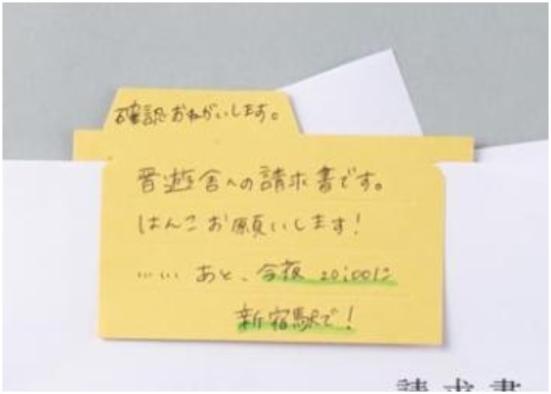 確認おねがいします。
晋遊舎への請求書です。
はんこお願いします!
…… あと、今夜 20:00に
新宿駅で!
請求書